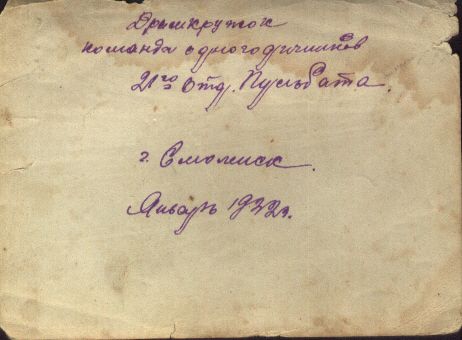 Драмкружок
команда одногодичников
21го Отд. Пульбата.
г. Смоленск.
Январь 1932г.